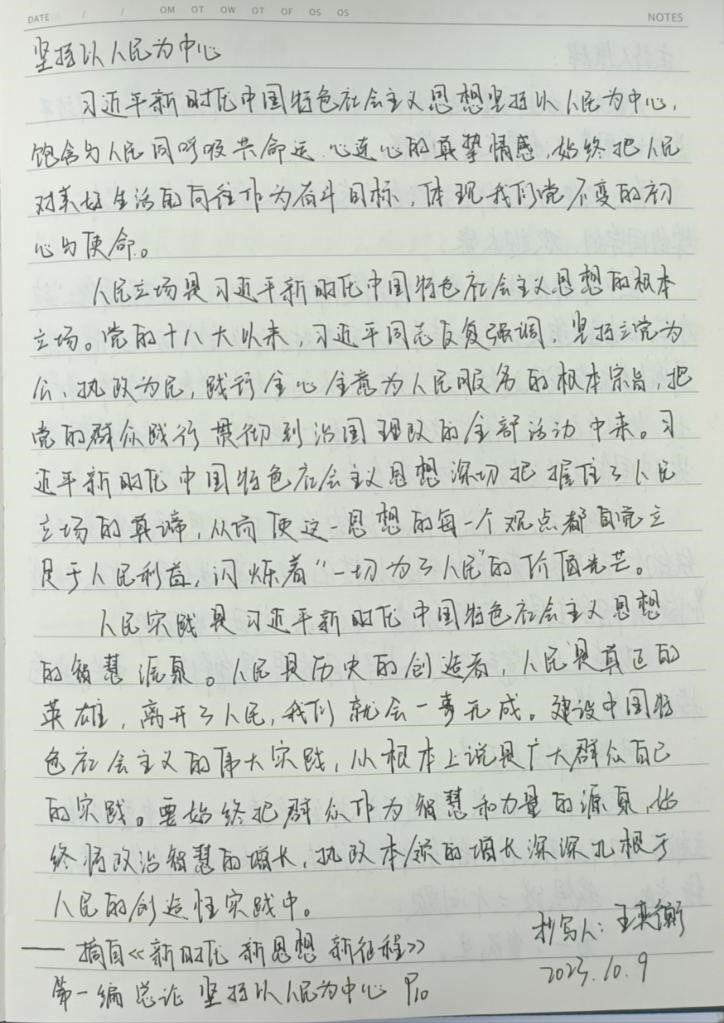 DATE / / OM OT OW OT OF OS OS NOTES
坚持以人民为中心
习近平新时代中国特色社会主义思想坚持以人民为中心，
饱含与人民同呼吸共命运、心连心的真挚情感，始终把人民
对美好生活的向往作为奋斗目标，体现我们党不变的初
心与使命。
人民立场是习近平新时代中国特色社会主义思想的根本
立场。党的十八大以来，习近平同志反复强调，坚持立党为
公、执政为民，践行全心全意为人民服务的根本宗旨，把
党的群众践行贯彻到治国理政的全部活动中来。习
近平新时代中国特色社会主义思想深切把握住了人民
立场的真谛，从而使这一思想的每一个观点都自觉立
足于人民利益，闪烁着“一切为了人民”的价值光芒。
人民实践是习近平新时代中国特色社会主义思想
的智慧源泉。人民是历史的创造者，人民是真正的
英雄，离开了人民，我们就会一事无成。建设中国特
色社会主义的伟大实践，从根本上说是广大群众自己
的实践。要始终把群众作为智慧和力量的源泉，始
终将政治智慧的增长、执政本领的增长深深扎根于
人民的创造性实践中。
—— 摘自《新时代 新思想 新征程》
第一编 总论 坚持以人民为中心 P10
抄写人：王奕衡
2023.10.9